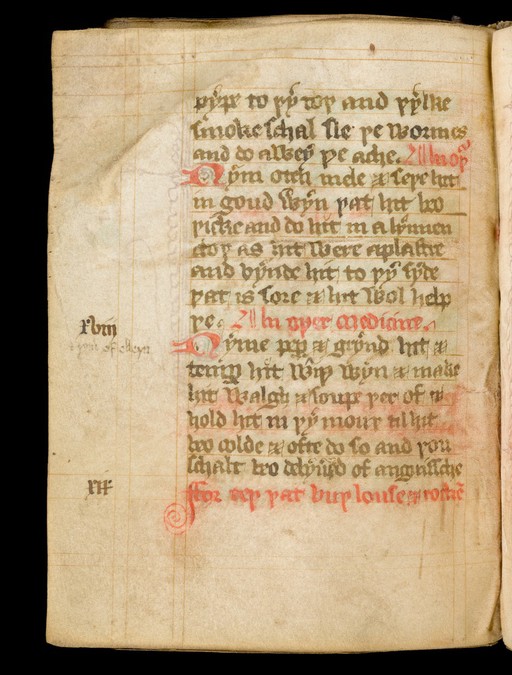 pype to þy toþ and þylke
smoke schal sle þe wormes
and do awey þe ache. An oþ
Nym oten mele & seþe hit
in goud wyn þat hit beo
þicke and do hit in a lynnen
cloþ as hit were a plastre
and bynde hit to þy syde
þat is sore & hit wol help
þe. An oþer medicine.
xviii
Nyme & grynd hit &
temp hit wiþ wyn & make
hit walgh & soupe þer of &
hold hit in þy mouþ til hit
beo colde & ofte do so and þou
schalt beo delyuered of anguissche
xix
ffor teeþ þat buþ louse &